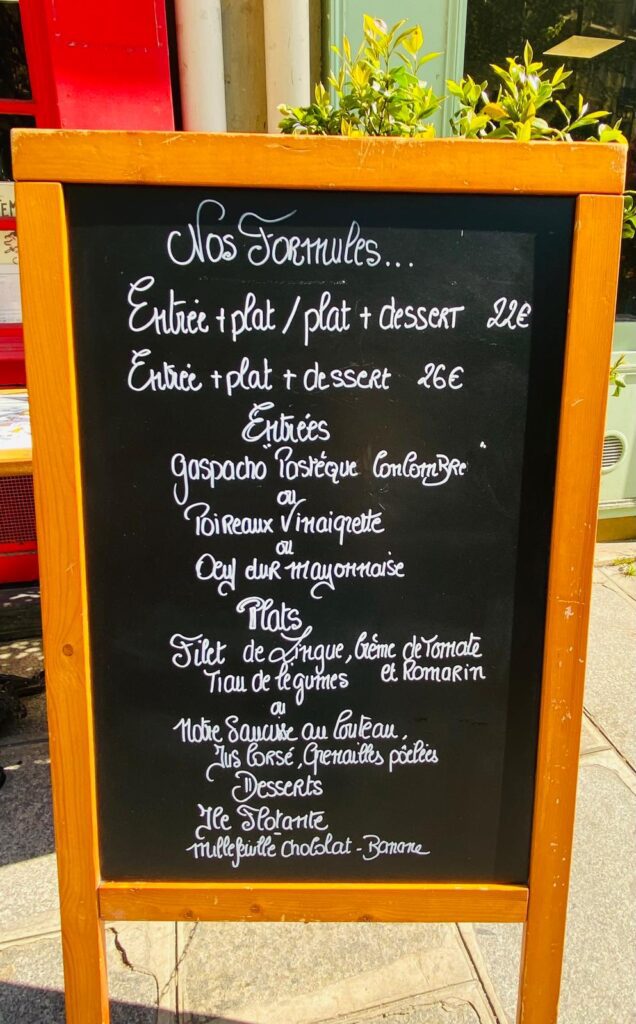 Nos Formules...
Entrée + plat / plat + dessert 22€
Entrée + plat + dessert 26€
Entrées
Gaspacho "Pastèque Concombre"
ou
Poireaux Vinaigrette
ou
Oeuf dur mayonnaise
Plats
Filet de Lingue, Crème de Tomate
Tian de légumes et Romarin
ou
Notre Saucisse au Couteau,
Jus Corsé, Grenailles poêlées
Desserts
Ile Flotante
Millefeuille Chocolat - Banane